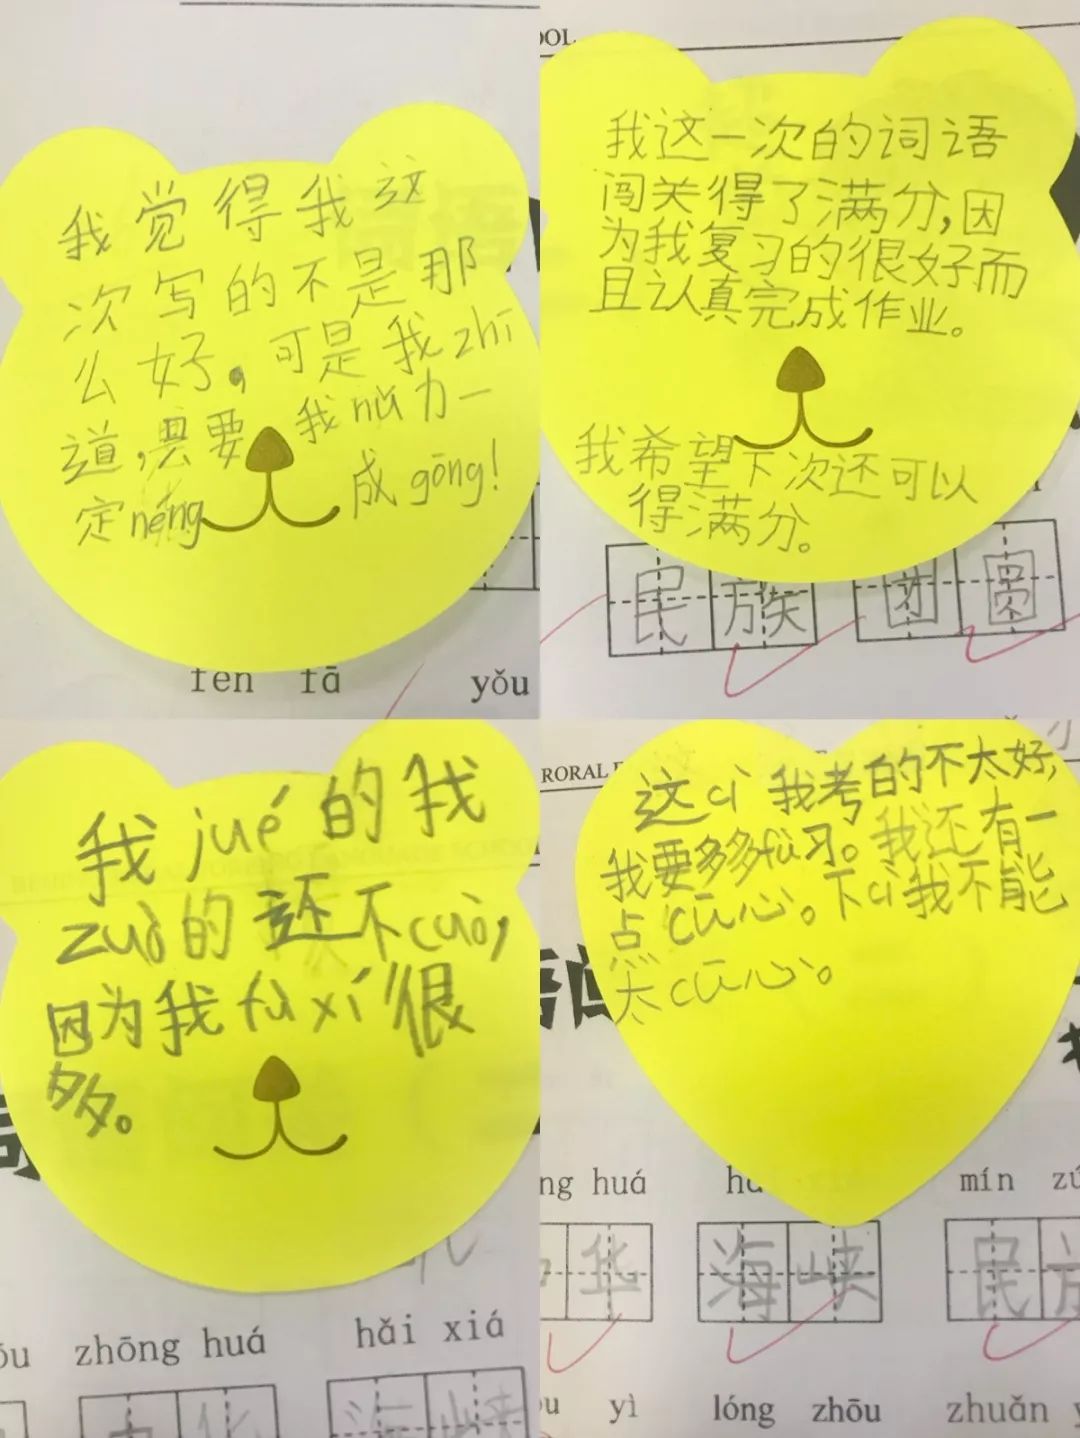 我觉得我这
次写的不是那
么好,可是我zhī
道,只要我nǔ力一
定néng成gōng!
fēn fā yǒu
OOL
我这一次的词语
闯关得了满分,因
为我复习的很好而
且认真完成作业。
我希望下次还可以
得满分。
民族 团圆
我jué的我
zuò的还不cuò,
因为我fù xí很
多。
zhōng huá hǎi xiá
RORAL
这cì我考的不太好,
我要多多fù习。我还有一
点cū心。下cì我不能
太cū心。
ng huá mín zú
华 海峡 民族
yì lóng zhōu zhuǎn